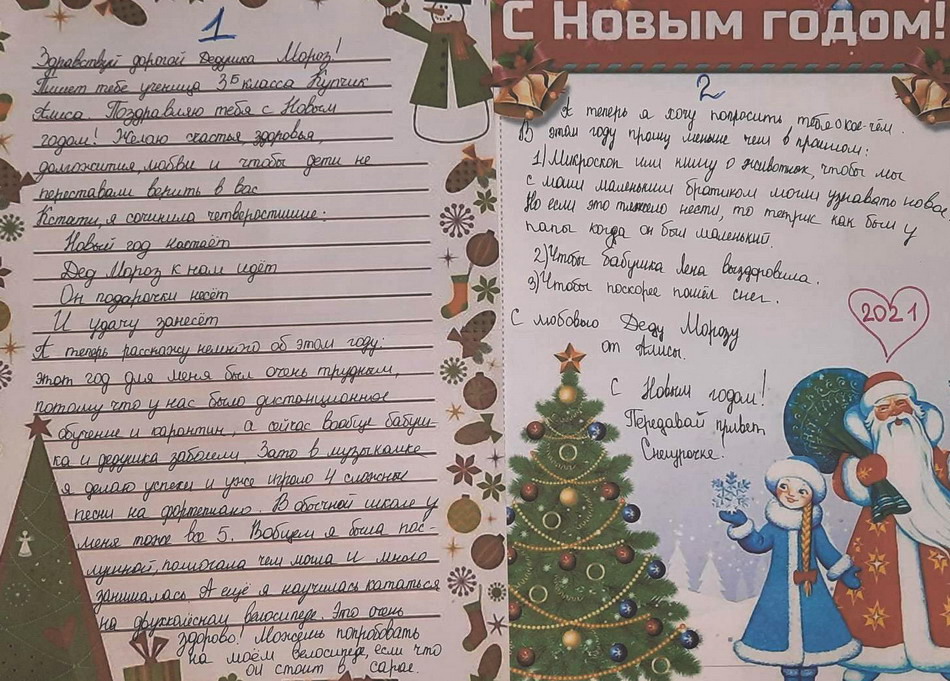 1
Здравствуй дорогой Дедушка Мороз!
Пишет тебе ученица 3Б класса Купчик
Алиса. Поздравляю тебя с Новым
годом! Желаю счастья, здоровья,
долгожития, любви и чтобы дети не
переставали верить в вас
Кстати, я сочинила четверостишие:
Новый год настаёт
Дед Мороз к нам идёт
Он подарочки несёт
И удачу занесёт
А теперь расскажу немного об этом году:
этот год для меня был очень трудным,
потому что у нас было дистанционное
обучение и карантин, а сейчас вообще бабуш-
ка и дедушка заболели. Зато в музыкалке
я делаю успехи и уже играю 4 сложные
песни на фортепиано. В обычной школе у
меня тоже все 5. Вобщем я была пос-
лушной, помогала чем могла и много
занималась А ещё я научилась кататься
на двухколёсном велосипеде. Это очень
здорово! Можешь попробовать
на моём велосипеде, если что
он стоит в сарае.
С Новым годом!
2
А теперь я хочу попросить тебя о кое-чём.
В этом году прошу меньше чем в прошлом:
1) Микроскоп или книгу о животных, чтобы мы
с маим маленьким братиком могли узнавать новое,
Но если это тяжело нести, то тетрис как был у
папы когда он был маленький.
2) Чтобы бабушка Лена выздоровила.
3) Чтобы поскорее пошёл снег.
С любовью Деду Морозу
от Алисы.
2021
С Новым годом!
Передавай привет
Снегурочке.